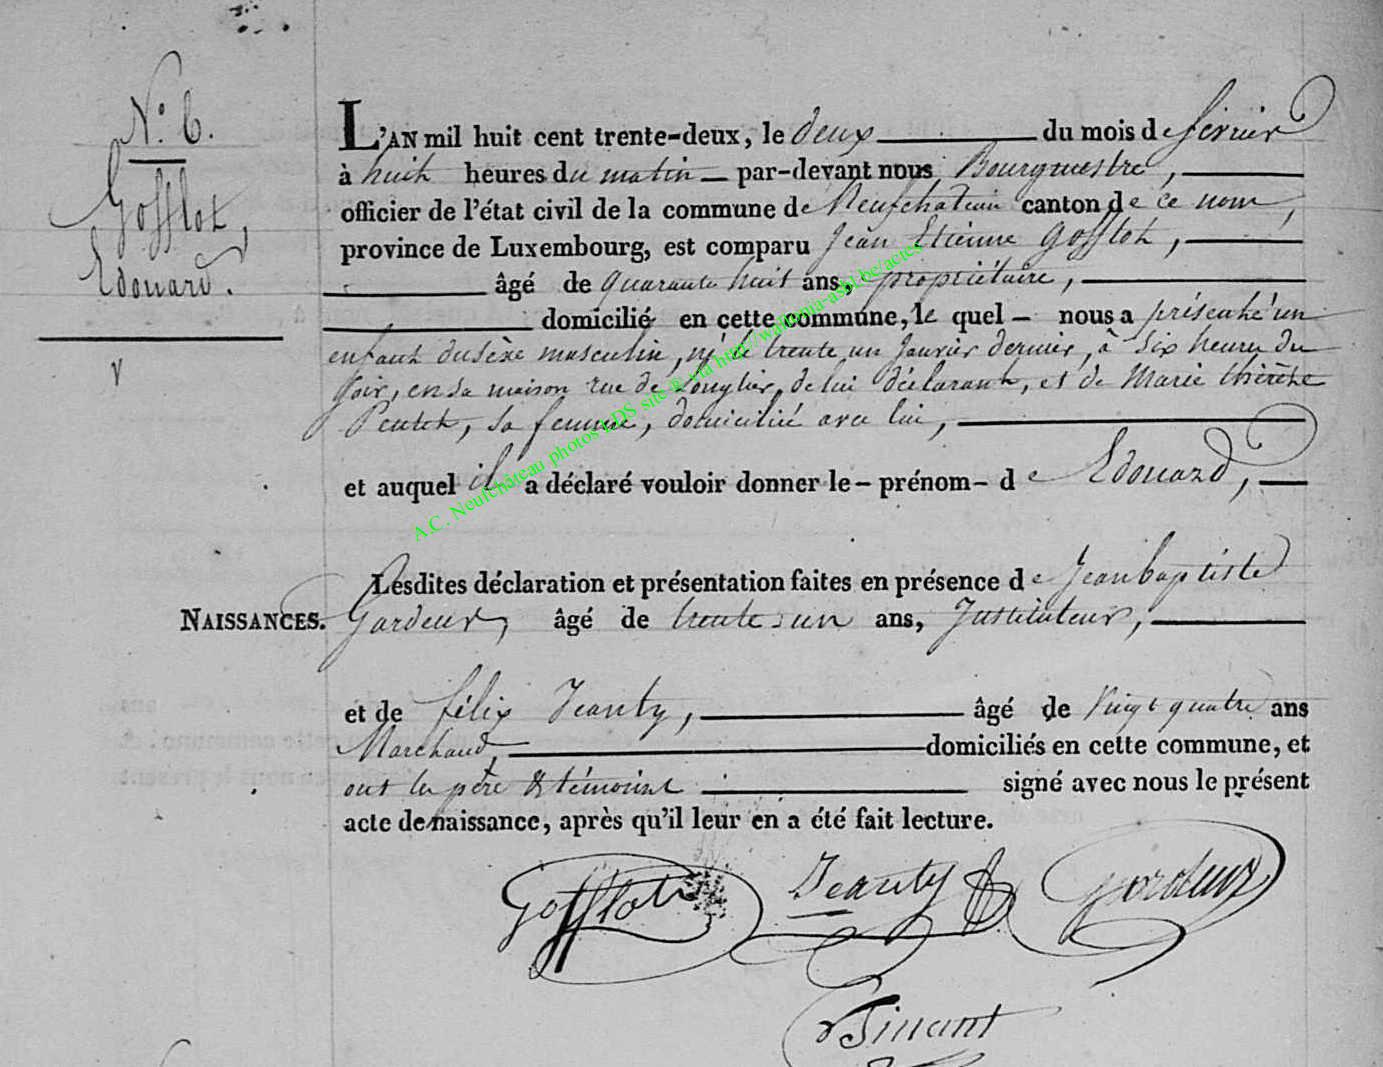 N.° 6.
Gofflot,
Edouard.
L'AN mil huit cent trente-deux, le deux du mois de février
à huit heures du matin par-devant nous Bourgmestre,
officier de l'état civil de la commune de Neufchateau canton de ce nom,
province de Luxembourg, est comparu Jean Etienne Gofflot,
âgé de quarante huit ans, propriétaire,
domicilié en cette commune, le quel – nous a présenté un
enfant du sèxe masculin, né le trente un Janvier dernier, à six heures du
soir, en sa maison rue de Longlier, de lui déclarant, et de Marie thérèse
sa femme, domicilié avec lui,
et auquel il a déclaré vouloir donner le – prénom – de Edouard,
Lesdites déclaration et présentation faites en présence de Jean baptiste
NAISSANCES.
Gardeur, âgé de trente un ans, Instituteur,
et de félix Jeanty, âgé de Vingt quatre ans
Marchand domiciliés en cette commune, et
ont les père & témoins signé avec nous le présent
acte de naissance, après qu'il leur en a été fait lecture.
Gofflot Jeanty Gardeur
A.C. Neufchâteau photos LDS site © via http://wallonia-asbl.be/actes